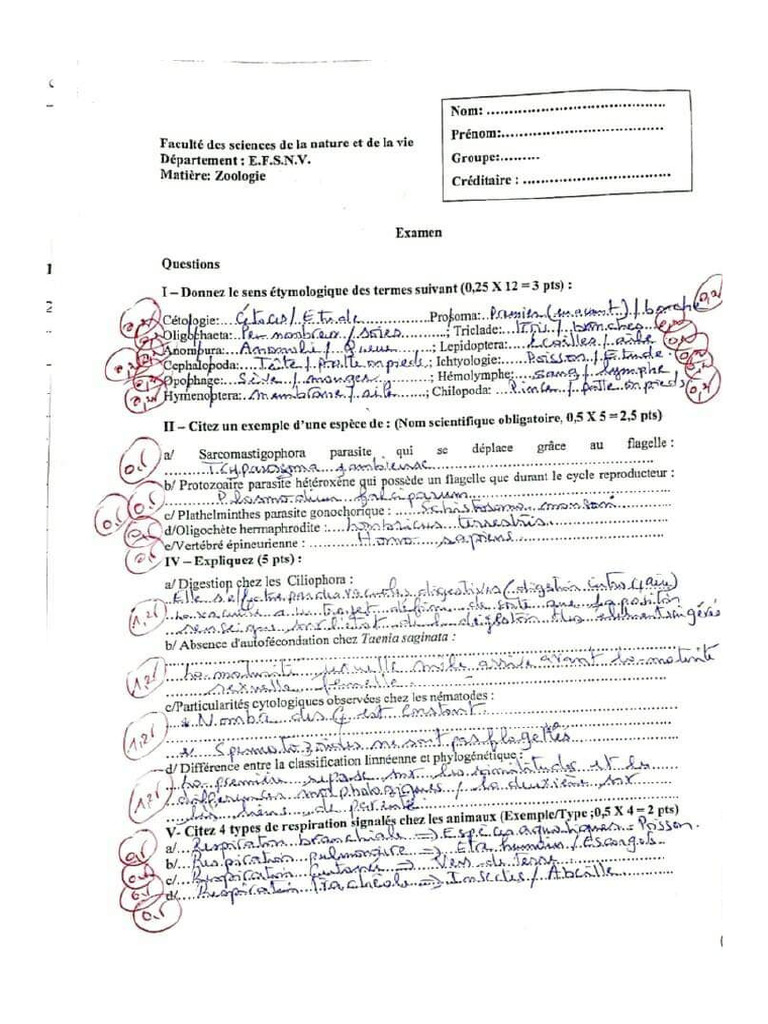 Nom: ........................................
Prénom:....................................
Faculté des sciences de la nature et de la vie
Département : E.F.S.N.V.
Groupe:.........
Matière: Zoologie
Créditaire : ........................................
Examen
Questions
I – Donnez le sens étymologique des termes suivant (0,25 X 12 = 3 pts) :
Cétologie: Cétacés / Etude Prosoma: Premier (en avant) /
Oligochaeta: Peu nombreux / soies ; Triclade: Tri / branches
Anomura: / queue ; Lepidoptera: Ecailles / aile
Cephalopoda: Tête / patte ou pied ; Ichtyologie: Poisson / Etude
Opophage: Sève / manger ; Hémolymphe: sang / lymphe
Hymenoptera: membrane / aile ; Chilopoda: Pince / patte ou pieds
II – Citez un exemple d'une espèce de : (Nom scientifique obligatoire, 0,5 X 5 = 2,5 pts)
a/ Sarcomastigophora parasite qui se déplace grâce au flagelle :
gambiense
b/ Protozoaire parasite hétéroxène qui possède un flagelle que durant le cycle reproducteur :
Plasmodium falciparum
c/ Plathelminthes parasite gonochorique : Schistosoma mansoni
d/Oligochète hermaphrodite : Lombricus terrestris
e/Vertébré épineurienne : Homo sapiens
IV – Expliquez (5 pts) :
a/ Digestion chez les Ciliophora :
Elle s'effectue par des vacuoles digestives (digestion intra )
La vacuole a un trajet défini de sorte que sa position
renseigne sur l'état de la digestion des aliments ingérés
b/ Absence d'autofécondation chez Taenia saginata :
La maturité sexuelle mâle arrive avant la maturité
sexuelle femelle
c/Particularités cytologiques observées chez les nématodes :
* Nombre des est constant
* Spermatozoïdes ne sont pas flagellés
d/ Différence entre la classification linnéenne et phylogénétique :
La première repose sur les similitudes et les
différences morphologiques / la deuxième sur
les liens de parenté
V- Citez 4 types de respiration signalés chez les animaux (Exemple/Type ;0,5 X 4 = 2 pts)
a/ Respiration branchiale => Espèces aquatiques : Poisson.
b/ Respiration pulmonaire => Etre humain / Escargots
c/ Respiration cutanée => Vers de terre
d/ Respiration trachéale => Insectes / Abeille